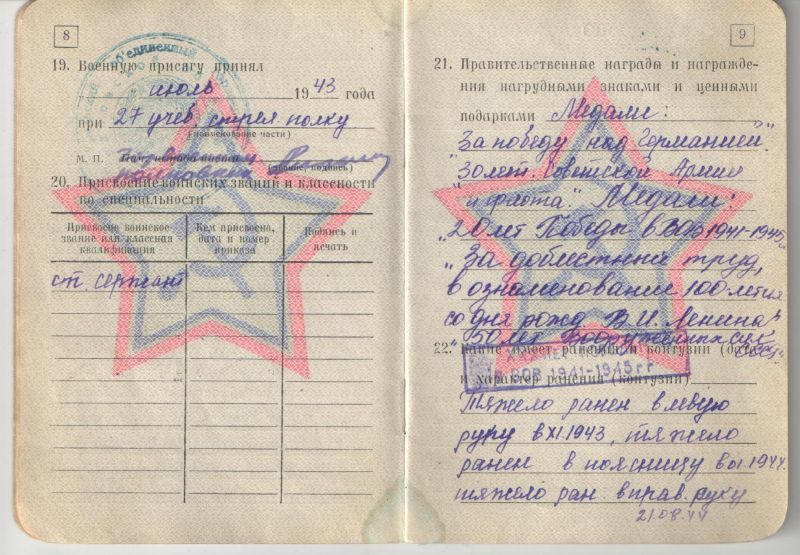 8
19. Военную присягу принял
июль 1943 года
при 27 учеб. стрел полку
(наименование части)
М. П.
полковник (звание, подпись)
20. Присвоение воинских званий и классности
по специальности
Присвоено воинское звание или классная квалификация
Кем присвоено, дата и номер приказа
Подпись и печать
ст. сержант
9
21. Правительственные награды и награжде-
ния нагрудными знаками и ценными
подарками Медали:
"За победу над Германией"
"30 лет. Советской Армии
и флота." Медали:
"20 лет Победы в ВОВ 1941-1945г."
"За доблестный труд,
в ознаменование 100-летия
со дня рожд. В.И. Ленина"
"50 лет Вооруженных сил СССР"
22. Какие имеет ранения и контузии
ВОВ 1941-1945 гг
и характер ранения (контузии)
Тяжело ранен в левую
руку в XI.1943, тяжело
ранен в поясницу в 1944.
тяжело ран. в прав. руку
21.08.44